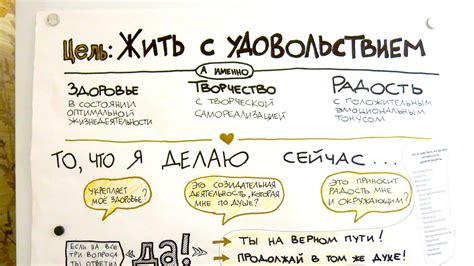 Цель: ЖИТЬ С УДОВОЛЬСТВИЕМ
А ИМЕННО
ЗДОРОВЬЕ
В СОСТОЯНИИ
ОПТИМАЛЬНОЙ
ЖИЗНЕДЕЯТЕЛЬНОСТИ
ТВОРЧЕСТВО
С ТВОРЧЕСКОЙ
САМОРЕАЛИЗАЦИЕЙ
РАДОСТЬ
С ПОЛОЖИТЕЛЬНЫМ
ЭМОЦИОНАЛЬНЫМ
ТОНУСОМ
ТО, ЧТО Я ДЕЛАЮ СЕЙЧАС...
УКРЕПЛЯЕТ
МОЁ ЗДОРОВЬЕ?
ЭТО СОЗИДАТЕЛЬНАЯ
ДЕЯТЕЛЬНОСТЬ, КОТОРАЯ
МНЕ ПО ДУШЕ?
ЭТО ПРИНОСИТ
РАДОСТЬ МНЕ
И ОКРУЖАЮЩИМ?
ЕСЛИ ЗА ВСЕ
ТРИ ВОПРОСА
ТЫ ОТВЕТИЛ
ДА!
ТЫ НА ВЕРНОМ ПУТИ!
ПРОДОЛЖАЙ В ТОМ ЖЕ ДУХЕ!